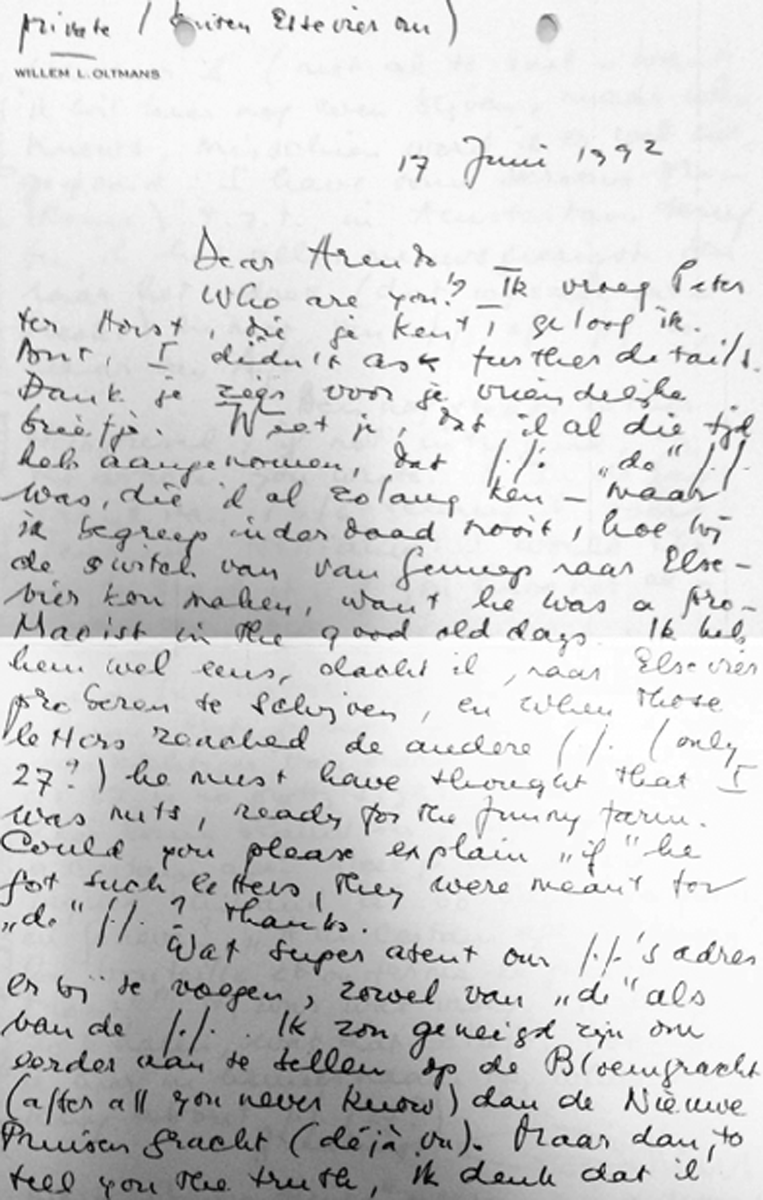 private / buiten Elsevier om)
WILLEM L. OLTMANS
17 Juni 1992
Dear Arendo,
Who are you? Ik vroeg Peter
ter Horst, die je kent, geloof ik.
But, I didn't ask further details.
Dank je zeer voor je vriendelijke
briefje. Weet je, dat ik al die tijd
heb aangenomen, dat J.J. „de" J.J.
was, die ik al zolang ken – maar
ik begreep inderdaad nooit, hoe hij
de switch van van Gennep naar Else-
vier kon maken, want he was a pro-
Maoist in the good old days. Ik heb
hem wel eens, dacht ik, naar Elsevier
proberen te schrijven, en when those
letters reached de andere J.J. (only
27?) he must have thought that I
was nuts, ready for the funny farm.
Could you please explain „if" he
got such letters, they were meant for
„de" J.J.? thanks.
Wat super atent om J.J.'s adres
er bij te voegen, zowel van „de" als
van de J.J. Ik zou geneigd zijn om
eerder aan te bellen op de Bloemgracht
(after all you never know) dan de Nieuwe
Prinsengracht (déjà vu). Maar dan, to
tell you the truth, ik denk dat ik